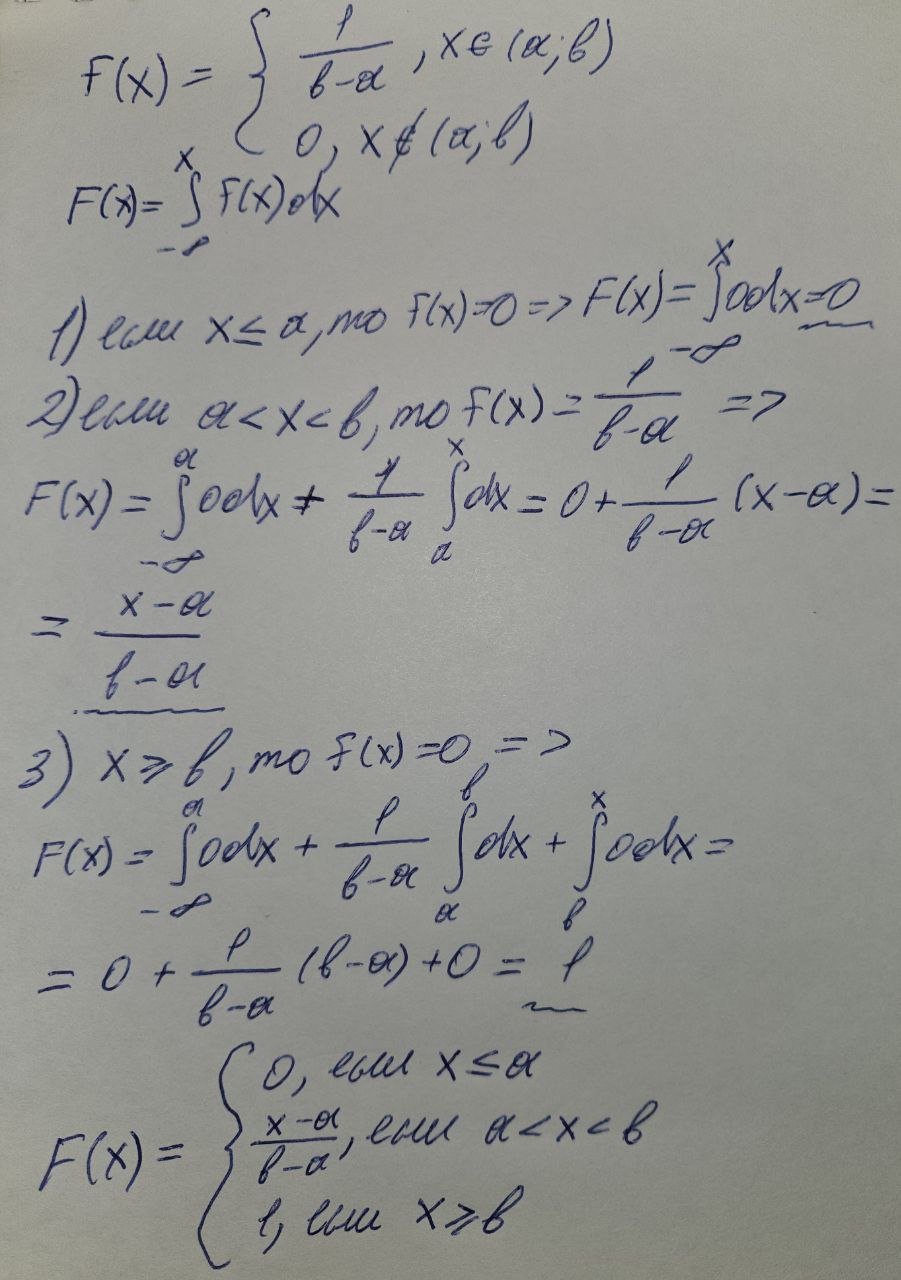 f(x) = { 1/(b-a), x∈(a;b)
0, x∉(a;b)
F(x) = ∫_{-∞}^{x} f(x)dx
1) если x≤a, то f(x)=0 => F(x) = ∫_{-∞}^{x} 0dx=0
2) если a<x<b, то f(x) = 1/(b-a) =>
F(x) = ∫_{-∞}^{a} 0dx + 1/(b-a) ∫_{a}^{x} dx = 0 + 1/(b-a) (x-a) =
= (x-a)/(b-a)
3) x≥b, то f(x)=0 =>
F(x) = ∫_{-∞}^{a} 0dx + 1/(b-a) ∫_{a}^{b} dx + ∫_{b}^{x} 0dx =
= 0 + 1/(b-a) (b-a) + 0 = 1
F(x) = { 0, если x≤a
(x-a)/(b-a), если a<x<b
1, если x≥b